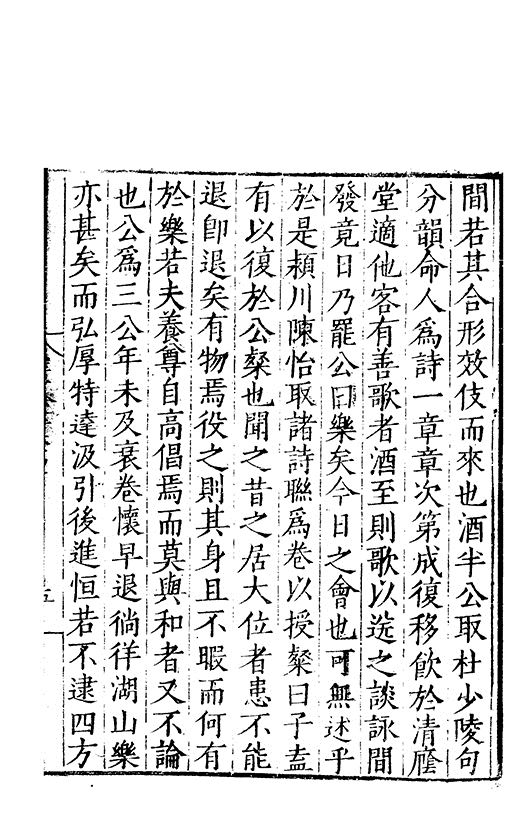 間若其合形效伎而來也酒半公取杜少陵句
分韻命人爲詩一章章次第成復移飲於清廕
堂適他客有善歌者酒至則歌以送之談詠間
發竟日乃罷公曰樂矣今日之會也可無述乎
於是潁川陳怡取諸詩聯爲卷以授粲曰子盍
有以復於公粲也聞之昔之居大位者患不能
退卽退矣有物焉役之則其身且不暇而何有
於樂若夫養尊自高倡焉而莫與和者又不論
也公爲三公年未及衰卷懷早退徜徉湖山樂
亦甚矣而弘厚特達汲引後進恒若不逮四方